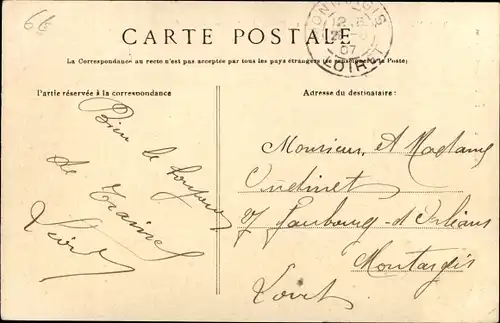 66
CARTE POSTALE
MONTARGIS
12
07
LOIRET
La Correspondance au recto n'est pas acceptée par tous les pays étrangers (se renseigner à la Poste)
Partie réservée à la correspondance
Adresse du destinataire:
Bien le bonjour
de
Monsieur et Madame
Ondinet
Faubourg d'Orléans
Montargis
Loiret